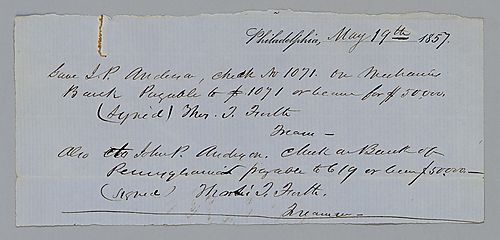 Philadelphia, May 19th 1857.
Gave J. P. Anderson, check No 1071. on Mechanics
Bank Payable to 1071 or bearer for $5000.00
(Signed) Thos. T. Firth
Treas
Also John P. Anderson. Check on Bank of
Pennsylvania payable to 619 or bearer $5000.00
(Signed) Thos. T. Firth.
Treasurer